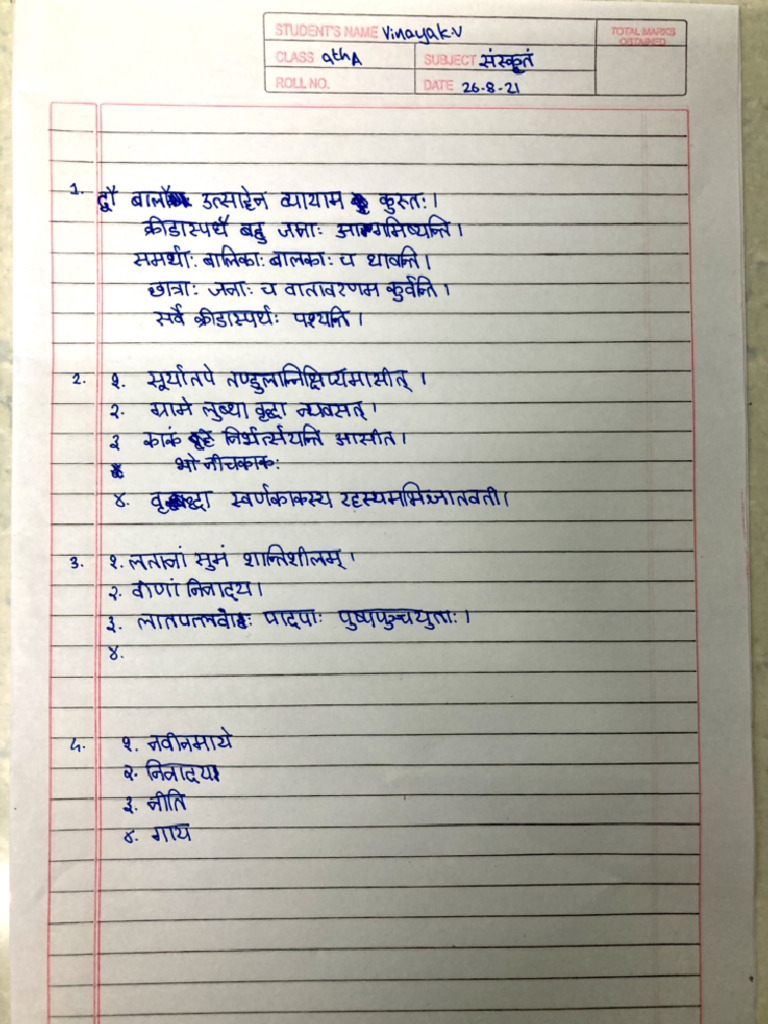 STUDENT'S NAME Vinayak.V
TOTAL MARKS OBTAINED
CLASS 9th A SUBJECT संस्कृतं
ROLL NO. DATE 26-8-21
1. द्वौ बालौ उत्साहेन व्यायाम कुरुतः।
क्रीडास्पर्धै बहु जनाः आगमिष्यन्ति।
समर्थाः बालिकाः बालकाः च धाबन्ति।
छात्राः जनाः च वातावरणम कुर्वन्ति।
सर्वे क्रीडास्पर्धः पश्यन्ति।
2. १. सूर्यातपे तण्डुलान्निक्षिप्यमासीत्।
२. ग्रामे लुब्धा वृद्धा न्यवसत्।
३ काकं निर्भर्त्सयन्ति आसीत।
भो नीचकाकः
४. वृद्धा स्वर्णकाकस्य रहस्यमभिज्ञातवती।
3. १. लतानां सुमं शान्तिशीलम्।
२. वीणां निनादय।
३. लातपल्लवोः पादपाः पुष्पपुञ्चयुताः।
४.
५. १. नवीनमाये
२. निनादया
३. नीति
४. गाय